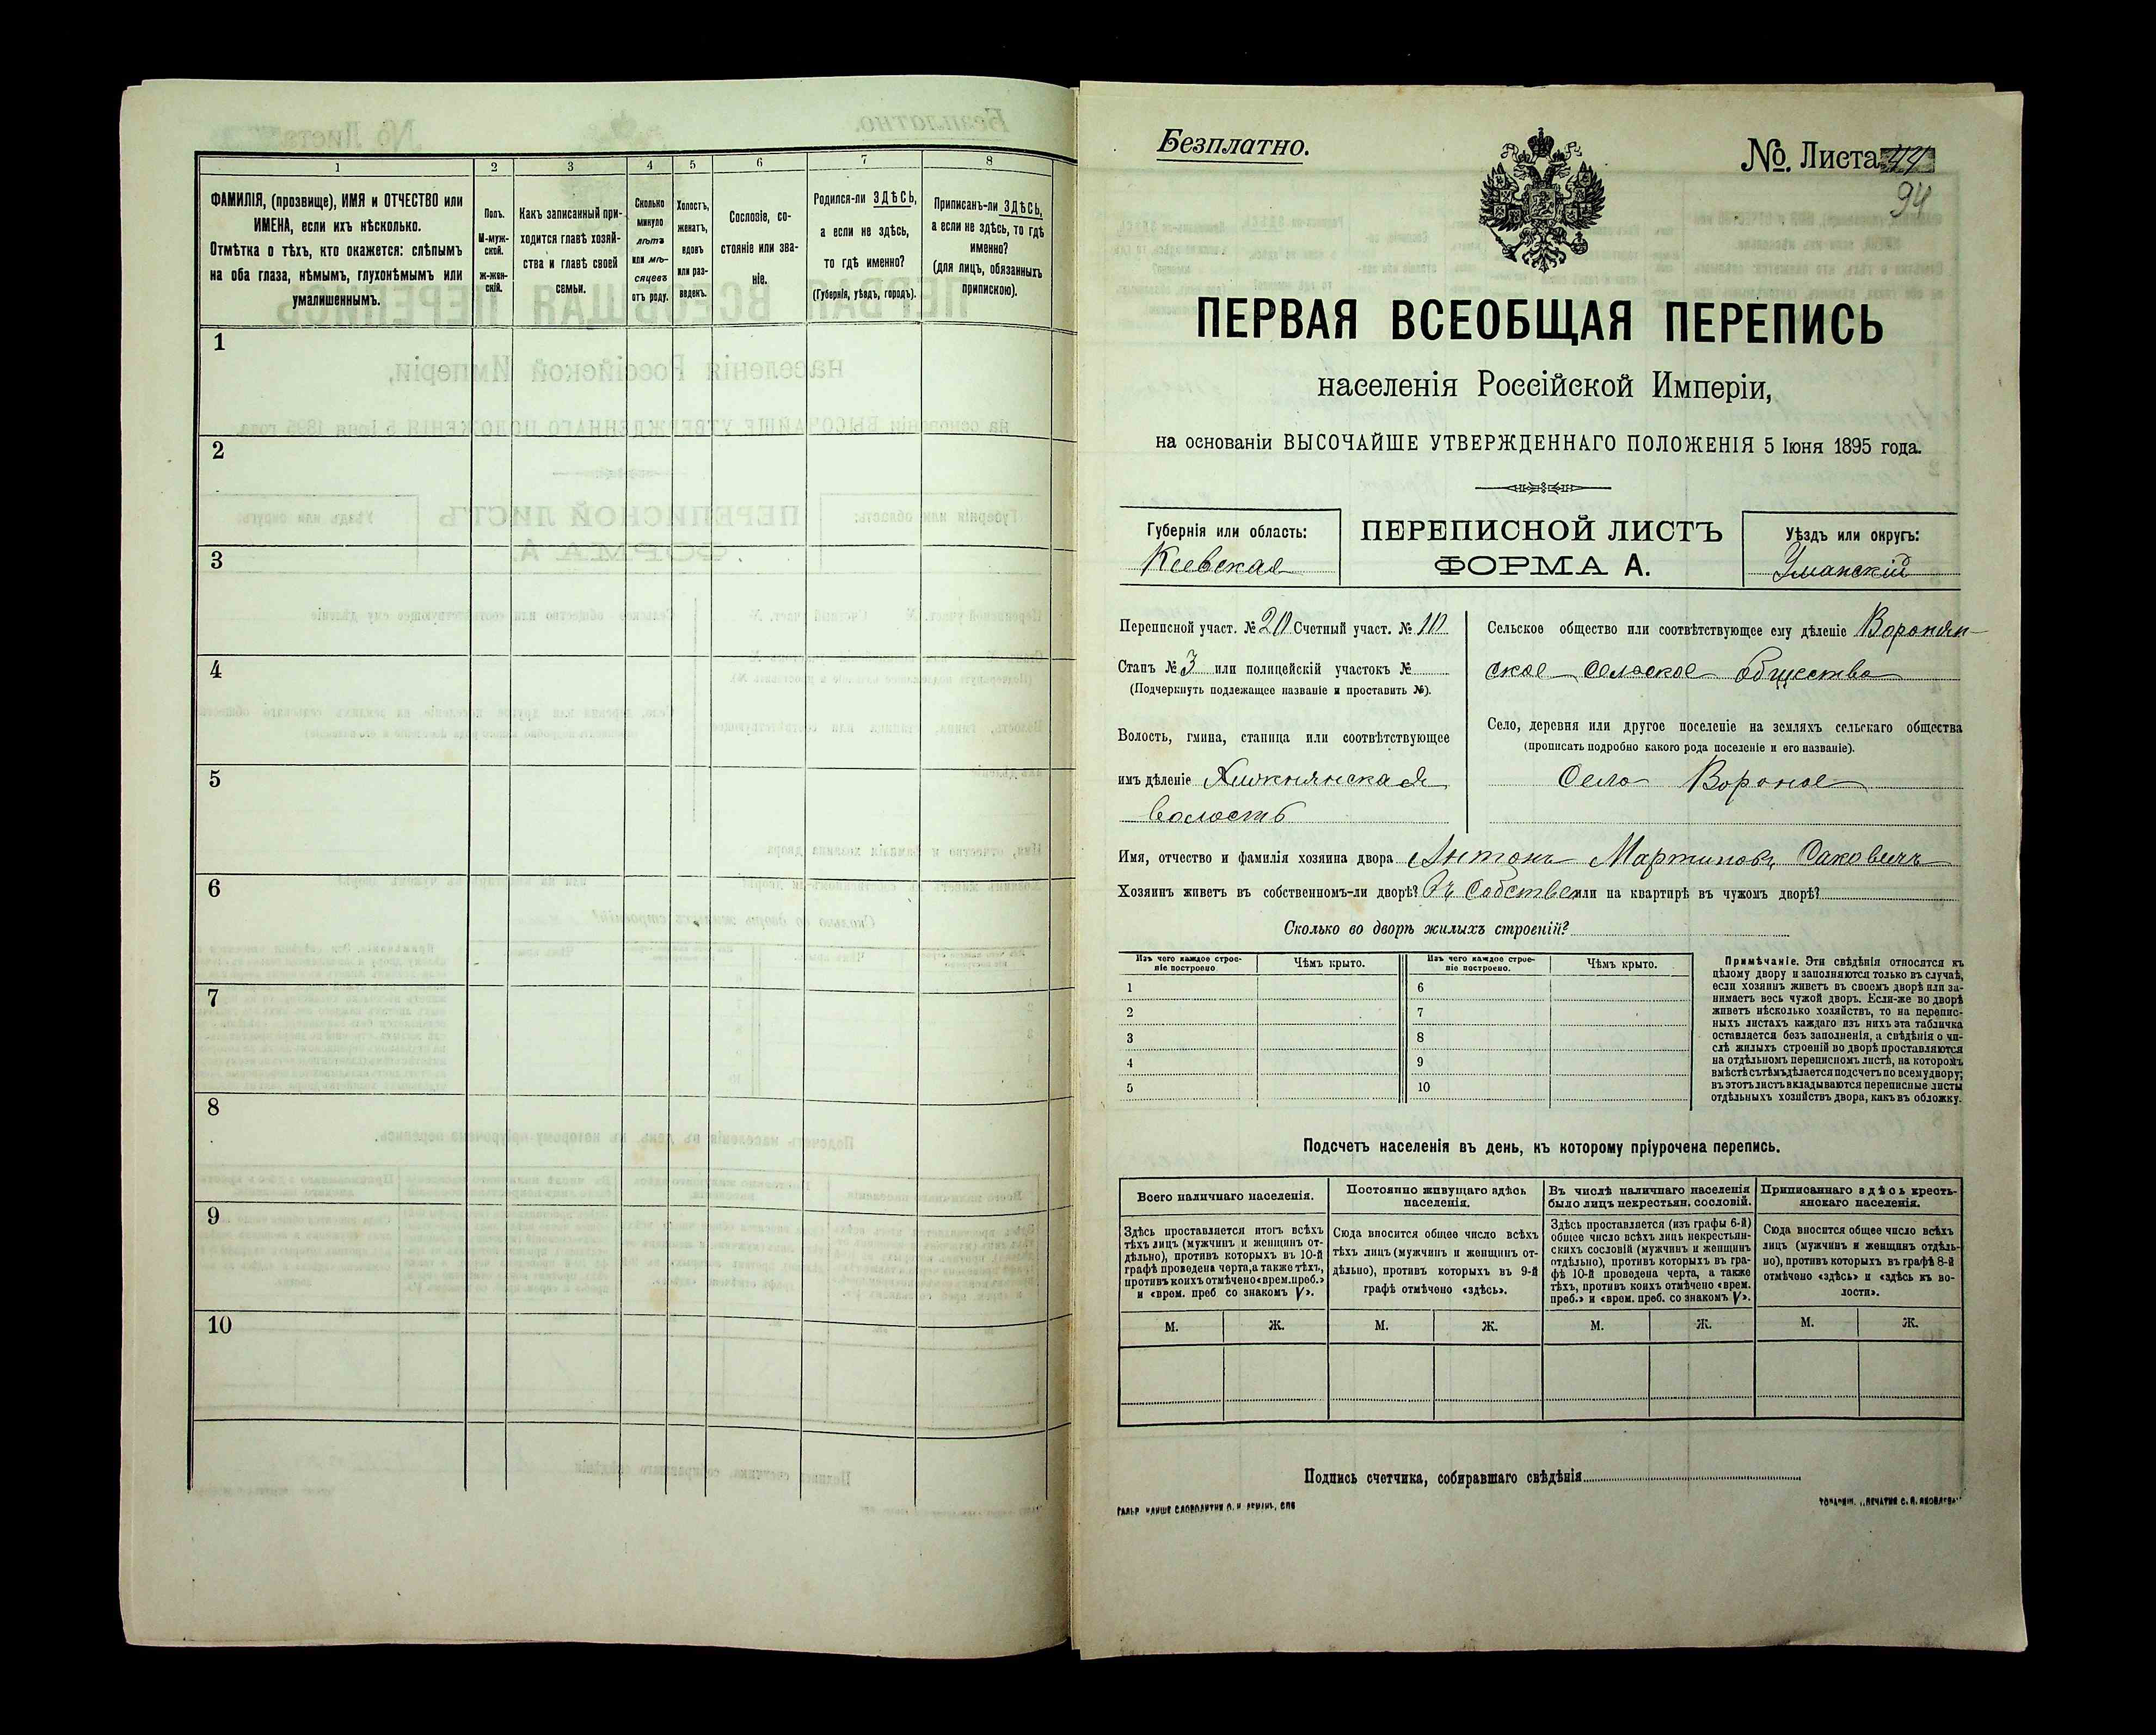 1
2
3
4
5
6
7
8
ФАМИЛІЯ, (прозвище), ИМЯ и ОТЧЕСТВО или
ИМЕНА, если ихъ нѣсколько.
Отмѣтка о тѣхъ, кто окажется: слѣпымъ
на оба глаза, нѣмымъ, глухонѣмымъ или
умалишеннымъ.
Полъ.
М-муж-
ской.
ж-жен-
скій.
Какъ записанный при-
ходится главѣ хозяй-
ства и главѣ своей
семьи.
Сколько
минуло
лѣтъ
или мѣ-
сяцевъ
отъ роду.
Холостъ,
женатъ,
вдовъ
или раз-
веденъ.
Сословіе, со-
стояніе или зва-
ніе.
Родился-ли ЗДѢСЬ,
а если не здѣсь,
то гдѣ именно?
(Губернія, уѣздъ, городъ).
Приписанъ-ли ЗДѢСЬ,
а если не здѣсь, то гдѣ
именно?
(для лицъ, обязанныхъ
припискою).
1
2
3
4
5
6
7
8
9
10
Безплатно.
№. Листа 44
94
ПЕРВАЯ ВСЕОБЩАЯ ПЕРЕПИСЬ
населенія Россійской Имперіи,
на основаніи ВЫСОЧАЙШЕ УТВЕРЖДЕННАГО ПОЛОЖЕНІЯ 5 Іюня 1895 года.
Губернія или область:
Кіевская
ПЕРЕПИСНОЙ ЛИСТЪ
ФОРМА А.
Уѣздъ или округъ:
Уманскій
Переписной участ. № 20 Счетный участ. № 10
Станъ № 3 или полицейскій участокъ №
(Подчеркнуть подлежащее названіе и проставить №).
Волость, гмина, станица или соотвѣтствующее
имъ дѣленіе Хижнянская
волость
Сельское общество или соотвѣтствующее ему дѣленіе Воронян-
ское сельское общество
Село, деревня или другое поселеніе на земляхъ сельскаго общества
(прописать подробно какого рода поселеніе и его названіе).
Село Вороное
Имя, отчество и фамилія хозяина двора Антонъ Мартиновъ Саковичъ
Хозяинъ живетъ въ собственномъ-ли дворѣ? Въ собствен или на квартирѣ въ чужомъ дворѣ?
Сколько во дворѣ жилыхъ строеній?
Изъ чего каждое строе-
ніе построено
Чѣмъ крыто.
Изъ чего каждое строе-
ніе построено.
Чѣмъ крыто.
1
6
2
7
3
8
4
9
5
10
Примѣчаніе. Эти свѣдѣнія относятся къ
цѣлому двору и заполняются только въ случаѣ,
если хозяинъ живетъ въ своемъ дворѣ или за-
нимаетъ весь чужой дворъ. Если-же во дворѣ
живетъ нѣсколько хозяйствъ, то на перепис-
ныхъ листахъ каждаго изъ нихъ эта табличка
оставляется безъ заполненія, а свѣдѣнія о чи-
слѣ жилыхъ строеній во дворѣ проставляются
на отдѣльномъ переписномъ листѣ, на которомъ
вмѣстѣ съ тѣмъ дѣлается подсчетъ по всему двору;
въ этотъ листъ вкладываются переписные листы
отдѣльныхъ хозяйствъ двора, какъ въ обложку.
Подсчетъ населенія въ день, къ которому пріурочена перепись.
Всего наличнаго населенія.
Здѣсь проставляется итогъ всѣхъ
тѣхъ лицъ (мужчинъ и женщинъ от-
дѣльно), противъ которыхъ въ 10-й
графѣ проведена черта, а также тѣхъ,
противъ коихъ отмѣчено «врем. преб.»
и «врем. преб. со знакомъ V».
Постоянно живущаго здѣсь
населенія.
Сюда вносится общее число всѣхъ
тѣхъ лицъ (мужчинъ и женщинъ от-
дѣльно), противъ которыхъ въ 9-й
графѣ отмѣчено «здѣсь».
Въ числѣ наличнаго населенія
было лицъ некрестьян. сословій.
Здѣсь проставляется (изъ графы 6-й)
общее число всѣхъ лицъ некрестьян-
скихъ сословій (мужчинъ и женщинъ
отдѣльно), противъ которыхъ въ гра-
фѣ 10-й проведена черта, а также
тѣхъ, противъ коихъ отмѣчено «врем.
преб.» и «врем. преб. со знакомъ V».
Приписаннаго здѣсь кресть-
янскаго населенія.
Сюда вносится общее число всѣхъ
лицъ (мужчинъ и женщинъ отдѣль-
но), противъ которыхъ въ графѣ 8-й
отмѣчено «здѣсь» и «здѣсь къ во-
лости».
М.
Ж.
М.
Ж.
М.
Ж.
М.
Ж.
Подпись счетчика, собиравшаго свѣдѣнія